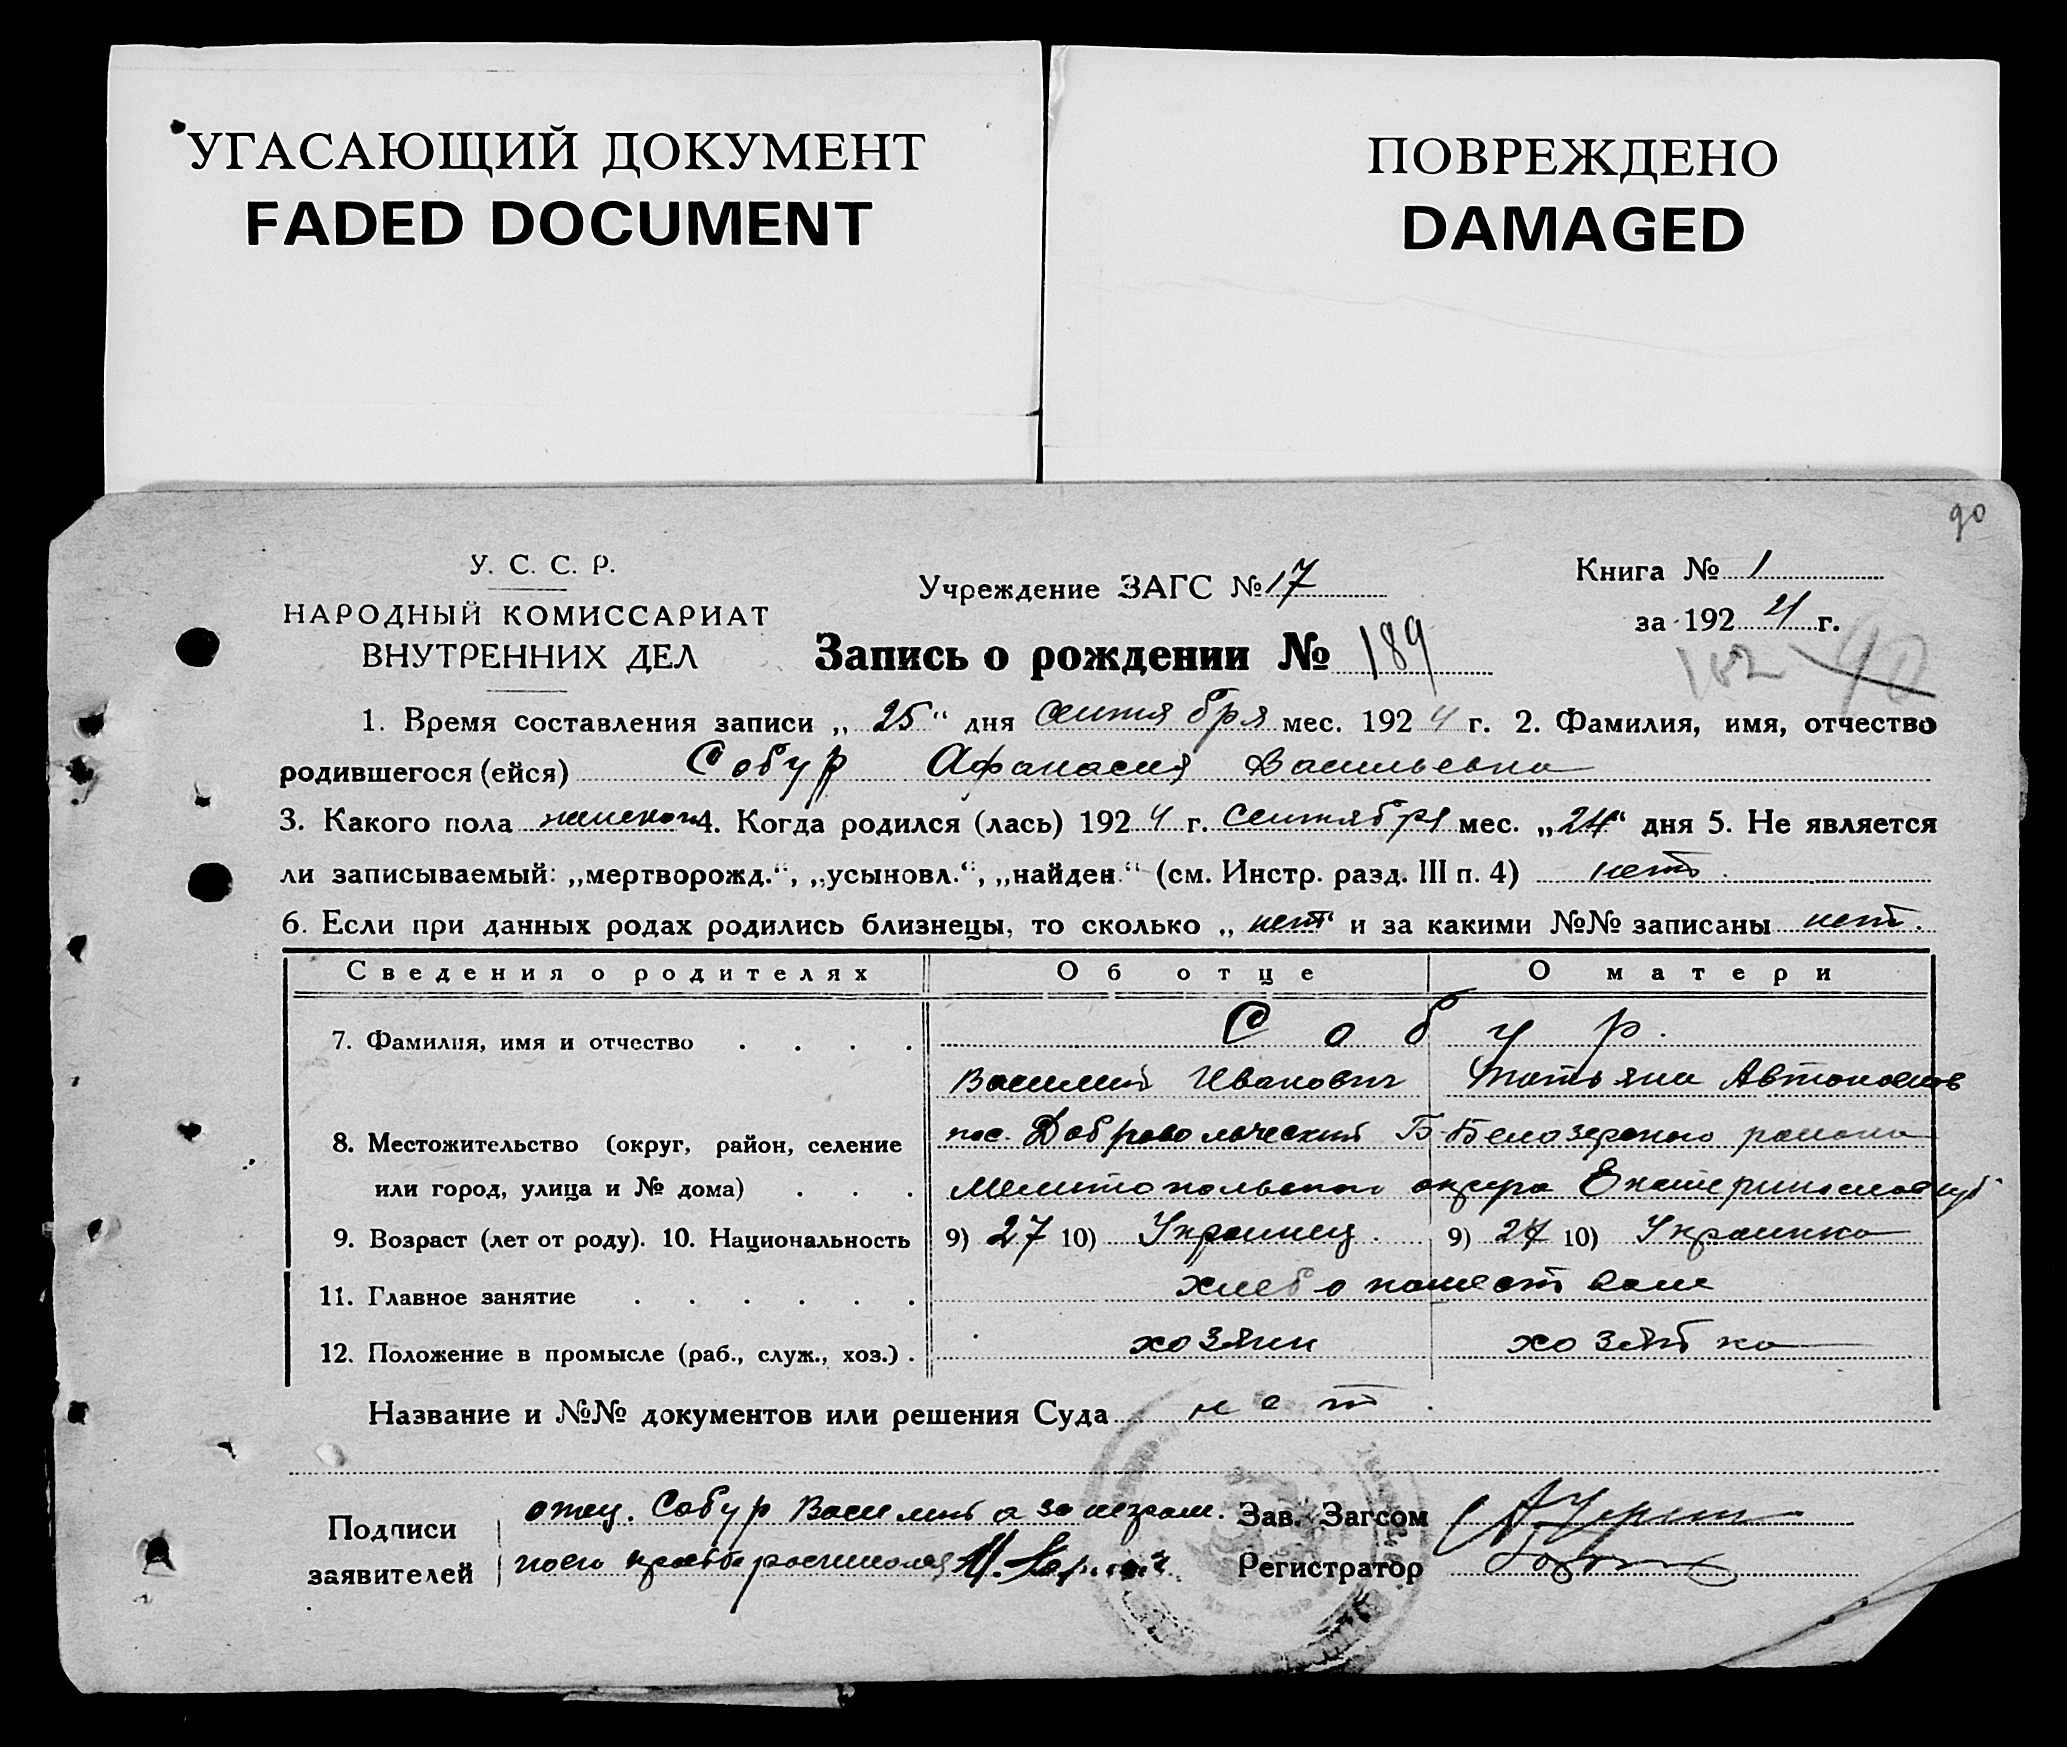 УГАСАЮЩИЙ ДОКУМЕНТ
FADED DOCUMENT
ПОВРЕЖДЕНО
DAMAGED
90
У. С. С. Р.
НАРОДНЫЙ КОМИССАРИАТ
ВНУТРЕННИХ ДЕЛ
Учреждение ЗАГС № 17
Запись о рождении № 189
Книга № 1
за 1924 г.
182
1. Время составления записи „25“ дня сентября мес. 1924 г. 2. Фамилия, имя, отчество
родившегося (ейся) Собур Афанасия Васильевна
3. Какого пола женского 4. Когда родился (лась) 1924 г. сентября мес. „24“ дня 5. Не является
ли записываемый: „мертворожд.“, „усыновл.“, „найден.“ (см. Инстр. разд. III п. 4) нет
6. Если при данных родах родились близнецы, то сколько „нет“ и за какими №№ записаны нет.
Сведения о родителях Об отце О матери
7. Фамилия, имя и отчество . . . . Собур.
Василий Иванович Татьяна
8. Местожительство (округ, район, селение пос. Добровольческий Б-Белозерского района
или город, улица и № дома) . . . Мелитопольского округа
9. Возраст (лет от роду). 10. Национальность 9) 27 10) Украинец. 9) 24 10) Украинка
11. Главное занятие . . . . . . хлебопашеством
12. Положение в промысле (раб., служ., хоз.) . хозяин хозяйка
Название и №№ документов или решения Суда нет.
Подписи
заявителей
отец. Собур Василий а за неграм. Зав. Загсом
Регистратор